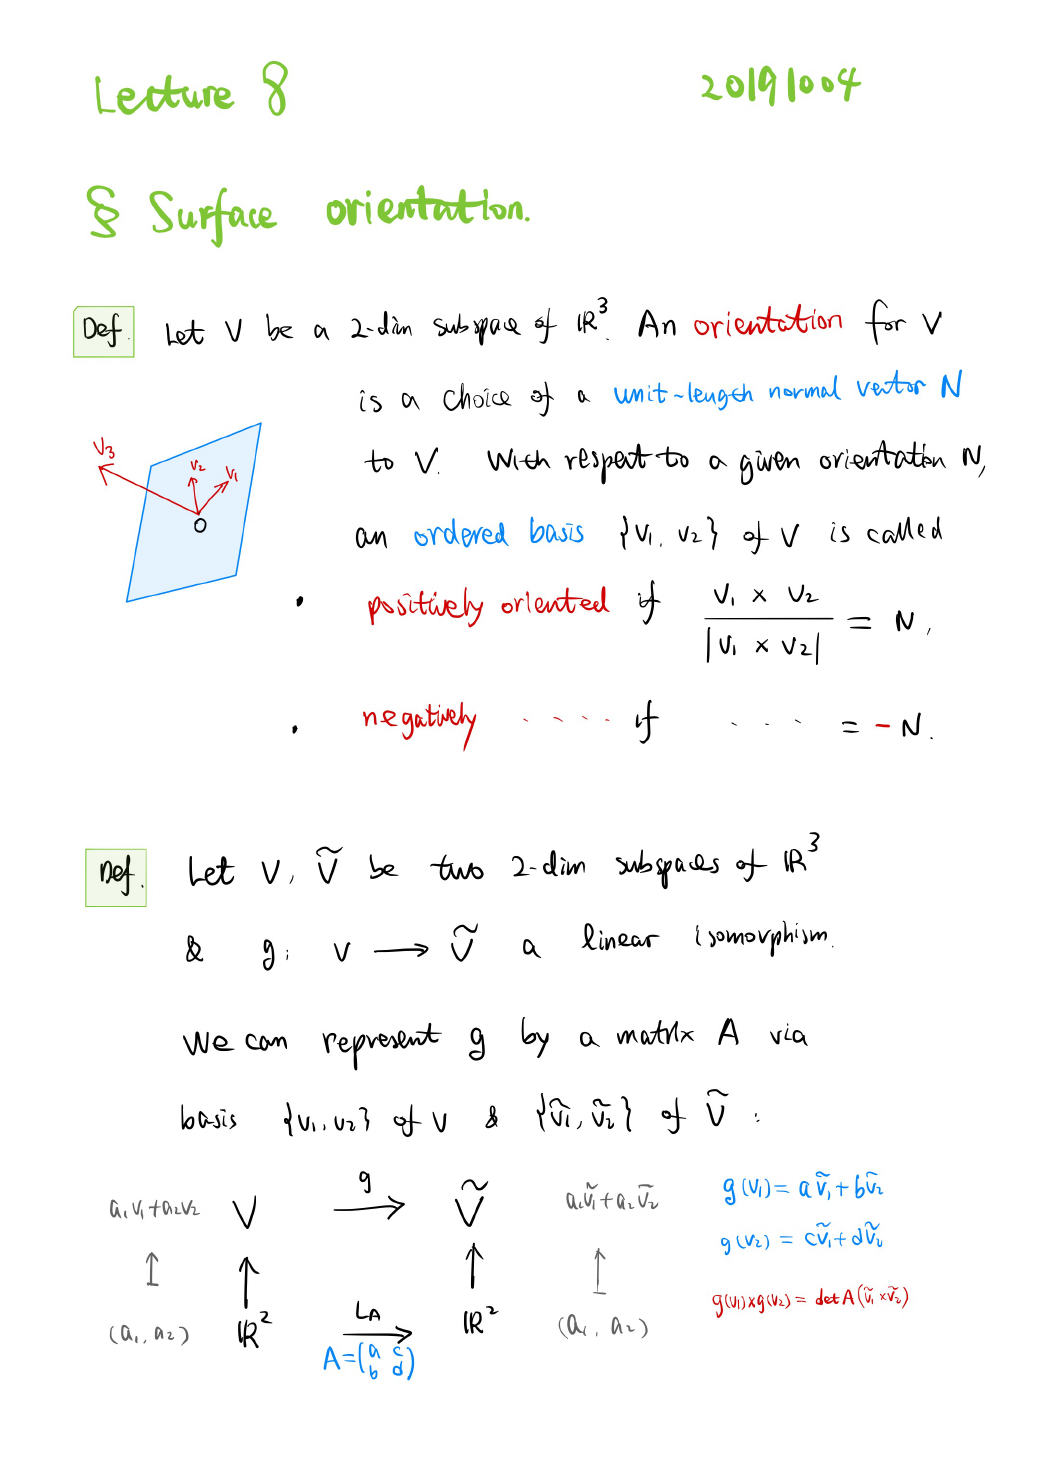 Lecture 8 20191004
§ Surface orientation.
Def. Let V be a 2-dim subspace of ℝ³. An orientation for V
is a choice of a unit-length normal vector N
to V. With respect to a given orientation N,
an ordered basis {v₁, v₂} of V is called
• positively oriented if (v₁ × v₂)/|v₁ × v₂| = N,
• negatively ..... if .... = -N.
v₃ v₂ v₁
O
Def. Let V, Ṽ be two 2-dim subspaces of ℝ³
& g: V ⟶ Ṽ a linear isomorphism.
We can represent g by a matrix A via
basis {v₁, v₂} of V & {ṽ₁, ṽ₂} of Ṽ:
a₁v₁+a₂v₂ V g ⟶ Ṽ a₁ṽ₁+a₂ṽ₂ g(v₁) = aṽ₁+bṽ₂
↥ ↑ ↑ ↥ g(v₂) = cṽ₁+dṽ₂
(a₁, a₂) ℝ² L_A ⟶ ℝ² (a₁, a₂) g(v₁)×g(v₂) = det A(ṽ₁×ṽ₂)
A = (a c
b d)